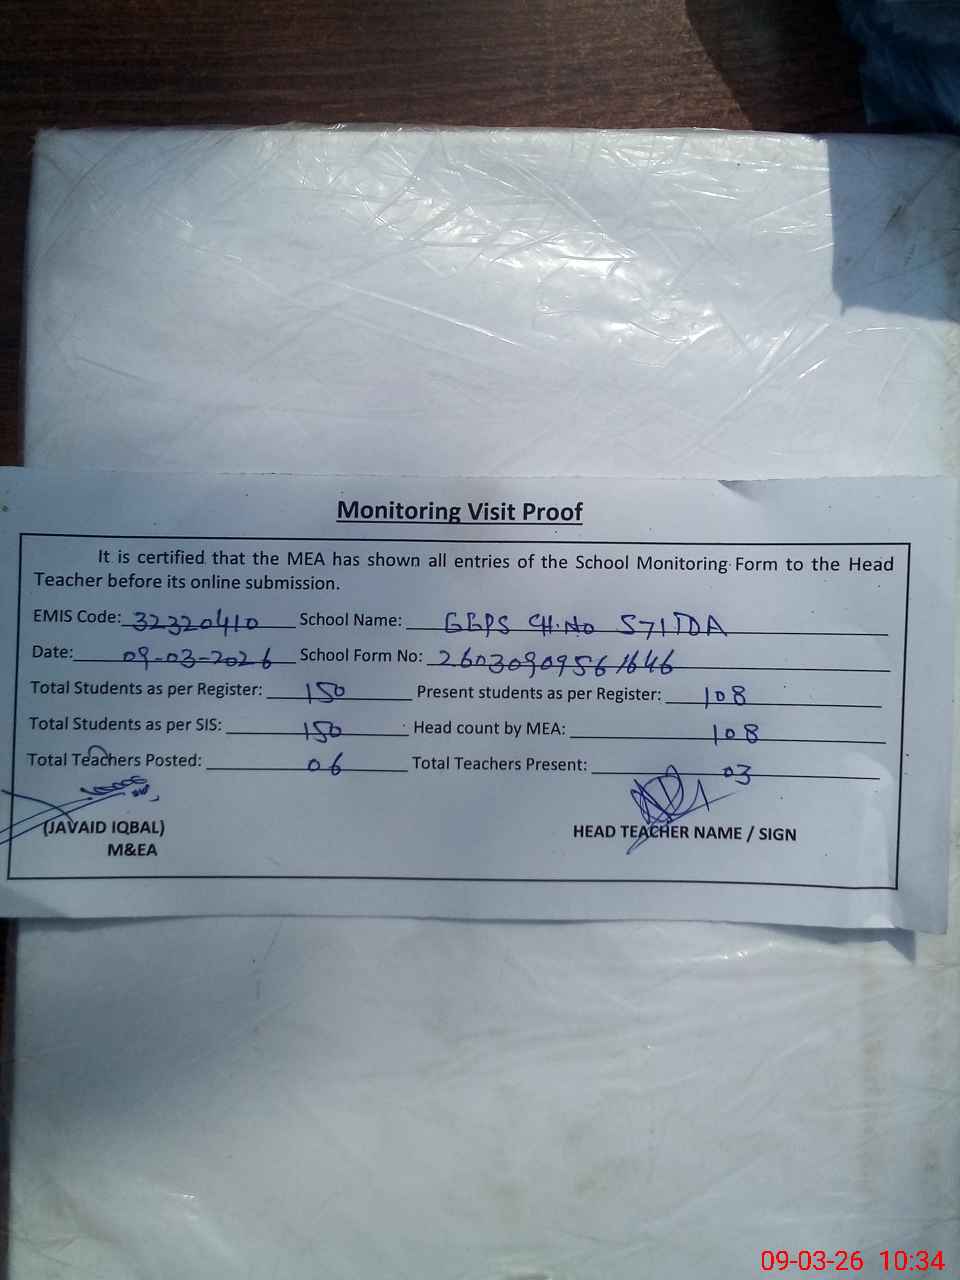 Monitoring Visit Proof
It is certified that the MEA has shown all entries of the School Monitoring Form to the Head
Teacher before its online submission.
EMIS Code: 32320410 School Name: GGPS CH.No 571TDA
Date: 09-03-2026 School Form No: 26030909561646
Total Students as per Register: 150 Present students as per Register: 108
Total Students as per SIS: 150 Head count by MEA: 108
Total Teachers Posted: 06 Total Teachers Present: 03
(JAVAID IQBAL) HEAD TEACHER NAME / SIGN
M&EA
09-03-26 10:34